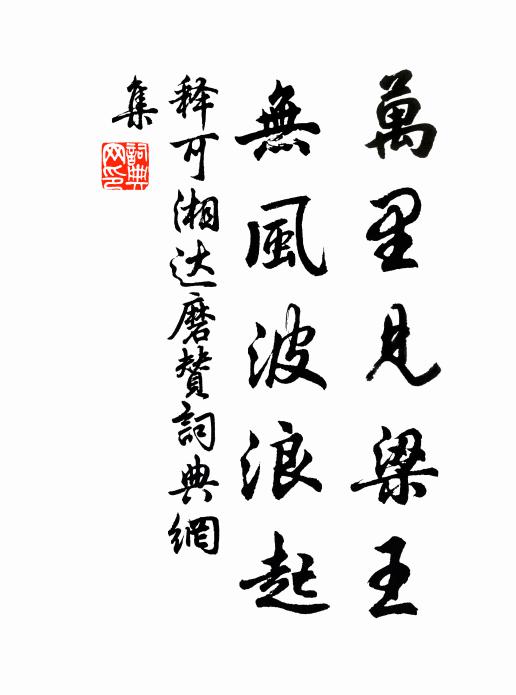 萬里見梁王
無風波浪起
释可湘达磨贊詞典網
集
詞典
网印